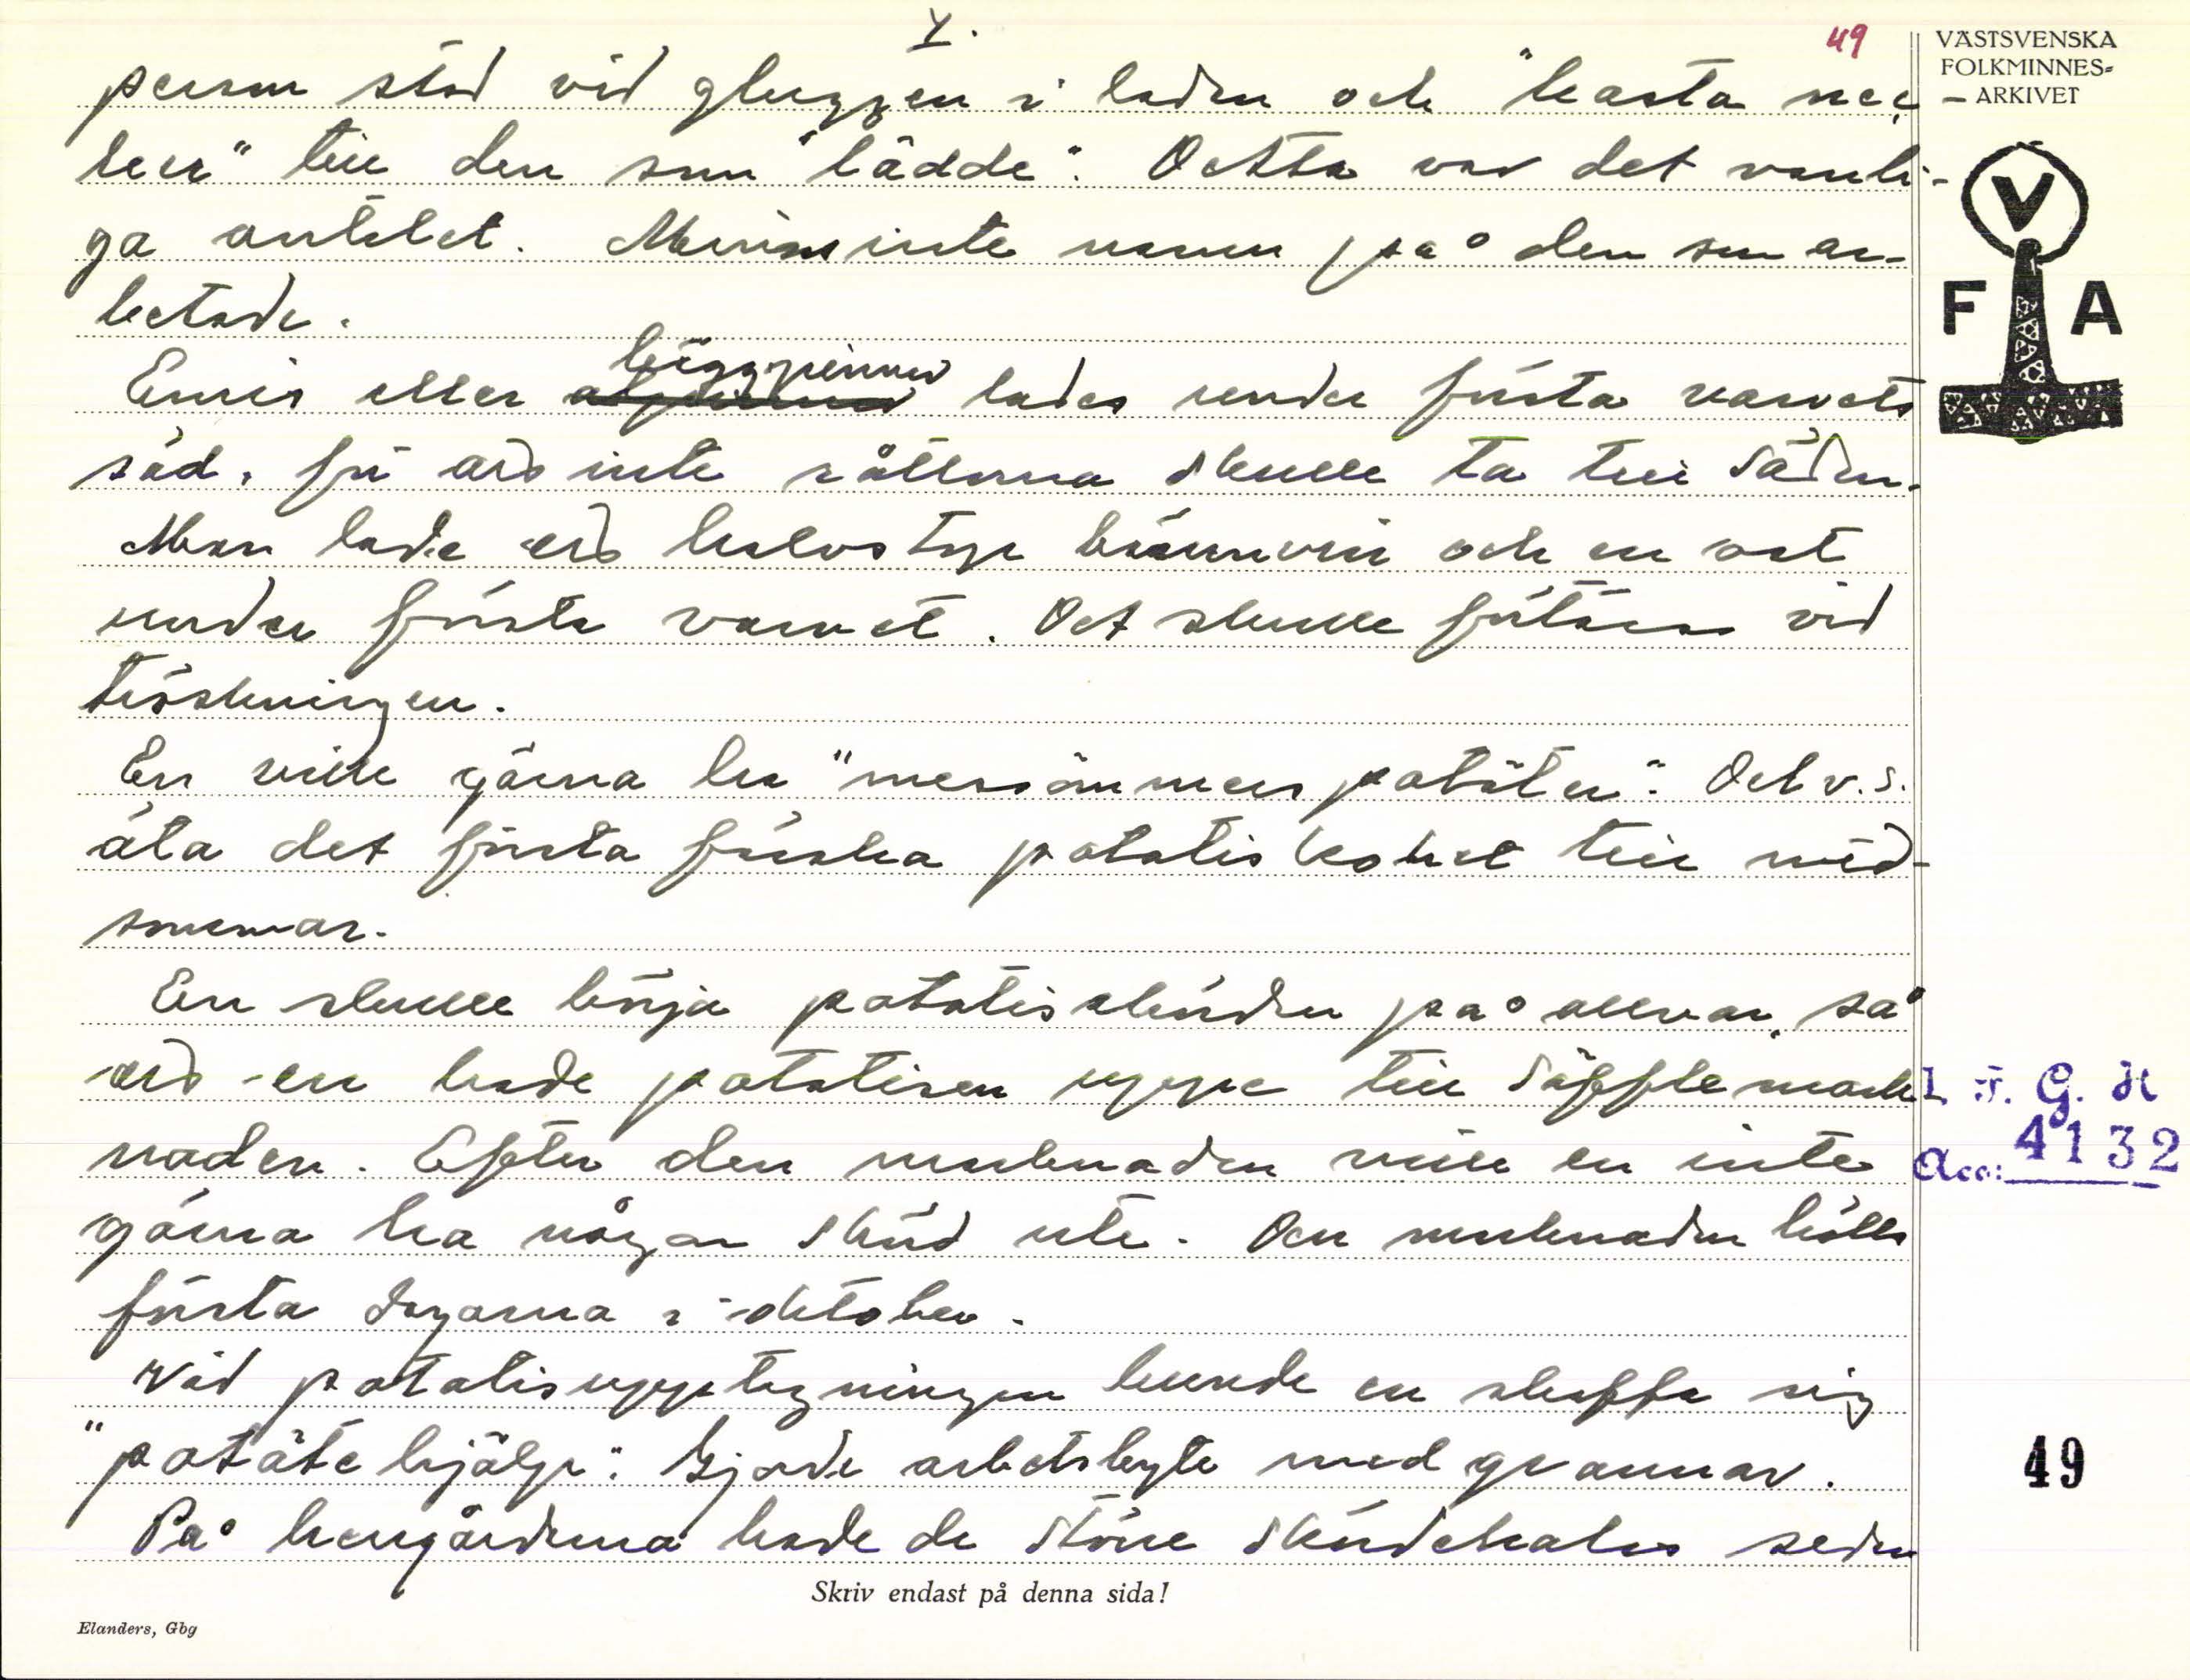 Y.
49
VÄSTSVENSKA
FOLKMINNES-
– ARKIVET
person stod vid gluggen i ladan och "kasta nec
keer" till den som "lädde". Detta var det vanli-
ga antalet. Minns inte namn på den som ar-
betade.
Enris eller läggpinnar lades under första varvets
säd, för att inte råttorna skulle ta till säden.
Man lade ett halvstop brännvin och en ost
under första varvet. Det skulle förtäras vid
tröskningen.
En ville gärna ha "messömmers potäter". Det v. s.
äta det första färska potatiskoket till mid-
sommar.
En skulle börja potatisskörden på allvar, så
att en hade potatisen uppe till Säffle mark
naden. Efter den marknaden ville en inte
gärna ha någon skörd ute. Den marknaden hölls
första dagarna i oktober.
Vid potatisupptagningen kunde en skaffa sig
"potäte hjälp". Gjorde arbetsbyte med grannar.
På herrgårdarna hade de större skördekalas sedan
V
F A
I. F. G. H
Acc: 4132
49
Skriv endast på denna sida!
Elanders, Gbg